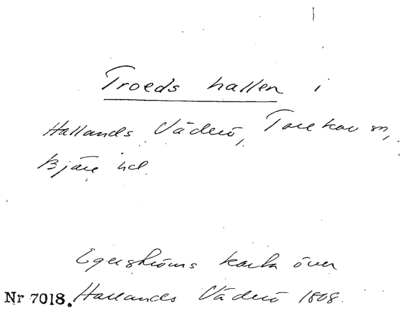 Troeds hallen i
Hallands Väderö, Torekov sn,
Bjäre hd.
Egerströms karta över
Nr 7018. Hallands Väderö 1808.